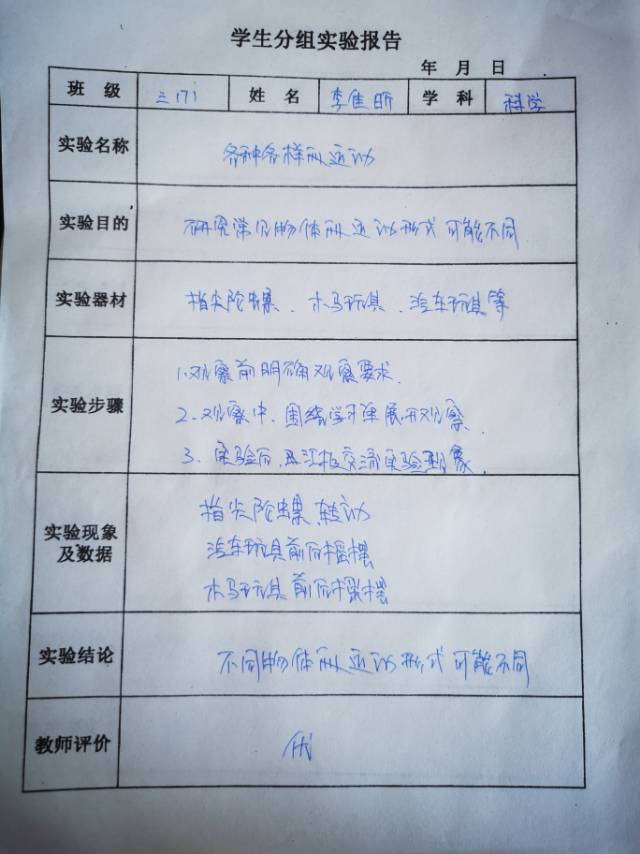 学生分组实验报告
年 月 日
班 级 三(7) 姓 名 李佳昕 学 科 科学
实验名称 各种各样的运动
实验目的 研究常见物体的运动形式可能不同
实验器材 指尖陀螺、木马玩具、汽车玩具等
实验步骤 1.观察前明确观察要求.
2.观察中,围绕学习单展开观察.
3.实验后,及汇报交流实验现象.
实验现象及数据 指尖陀螺 转动
汽车玩具前后摇摆
木马玩具前后摇摆
实验结论 不同物体的运动形式可能不同
教师评价 优